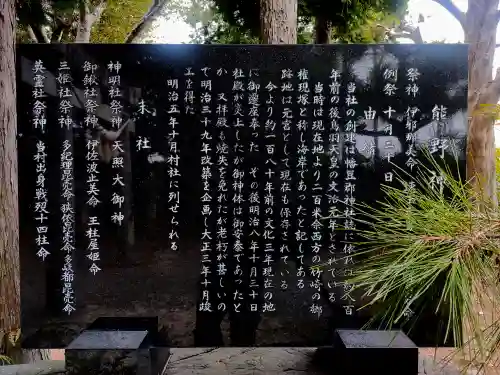 熊野神
祭神 伊邪那美命
例祭 十月二十日
由
当社の創建は幡豆郡神社誌に依れば約八百
年前の後鳥羽天皇の文治元年とされている
当時は現在地より二百米余西方の竹崎の榔
権現塚と称し海岸であったと記してある
跡地は元宮として現在も保存されている
今より約一百八十年前の文化三年現在の地
に御遷座奉った その後明治八年十月三十日
社殿が炎上したが御神体は御安泰であったと
か 又拝殿も焼失を免れたが老朽が甚しいの
で明治三十九年改築を企画し大正三年十月竣
工を得た
明治五年十月村社に列せられる
末社
神明社祭神 天照大御神
御鍬社祭神 伊佐波止美命 玉柱屋姫命
三姫社祭神 多紀理毘売命 狭依毘売命 多岐都毘売命
英霊社祭神 当村出身戦歿十四柱命